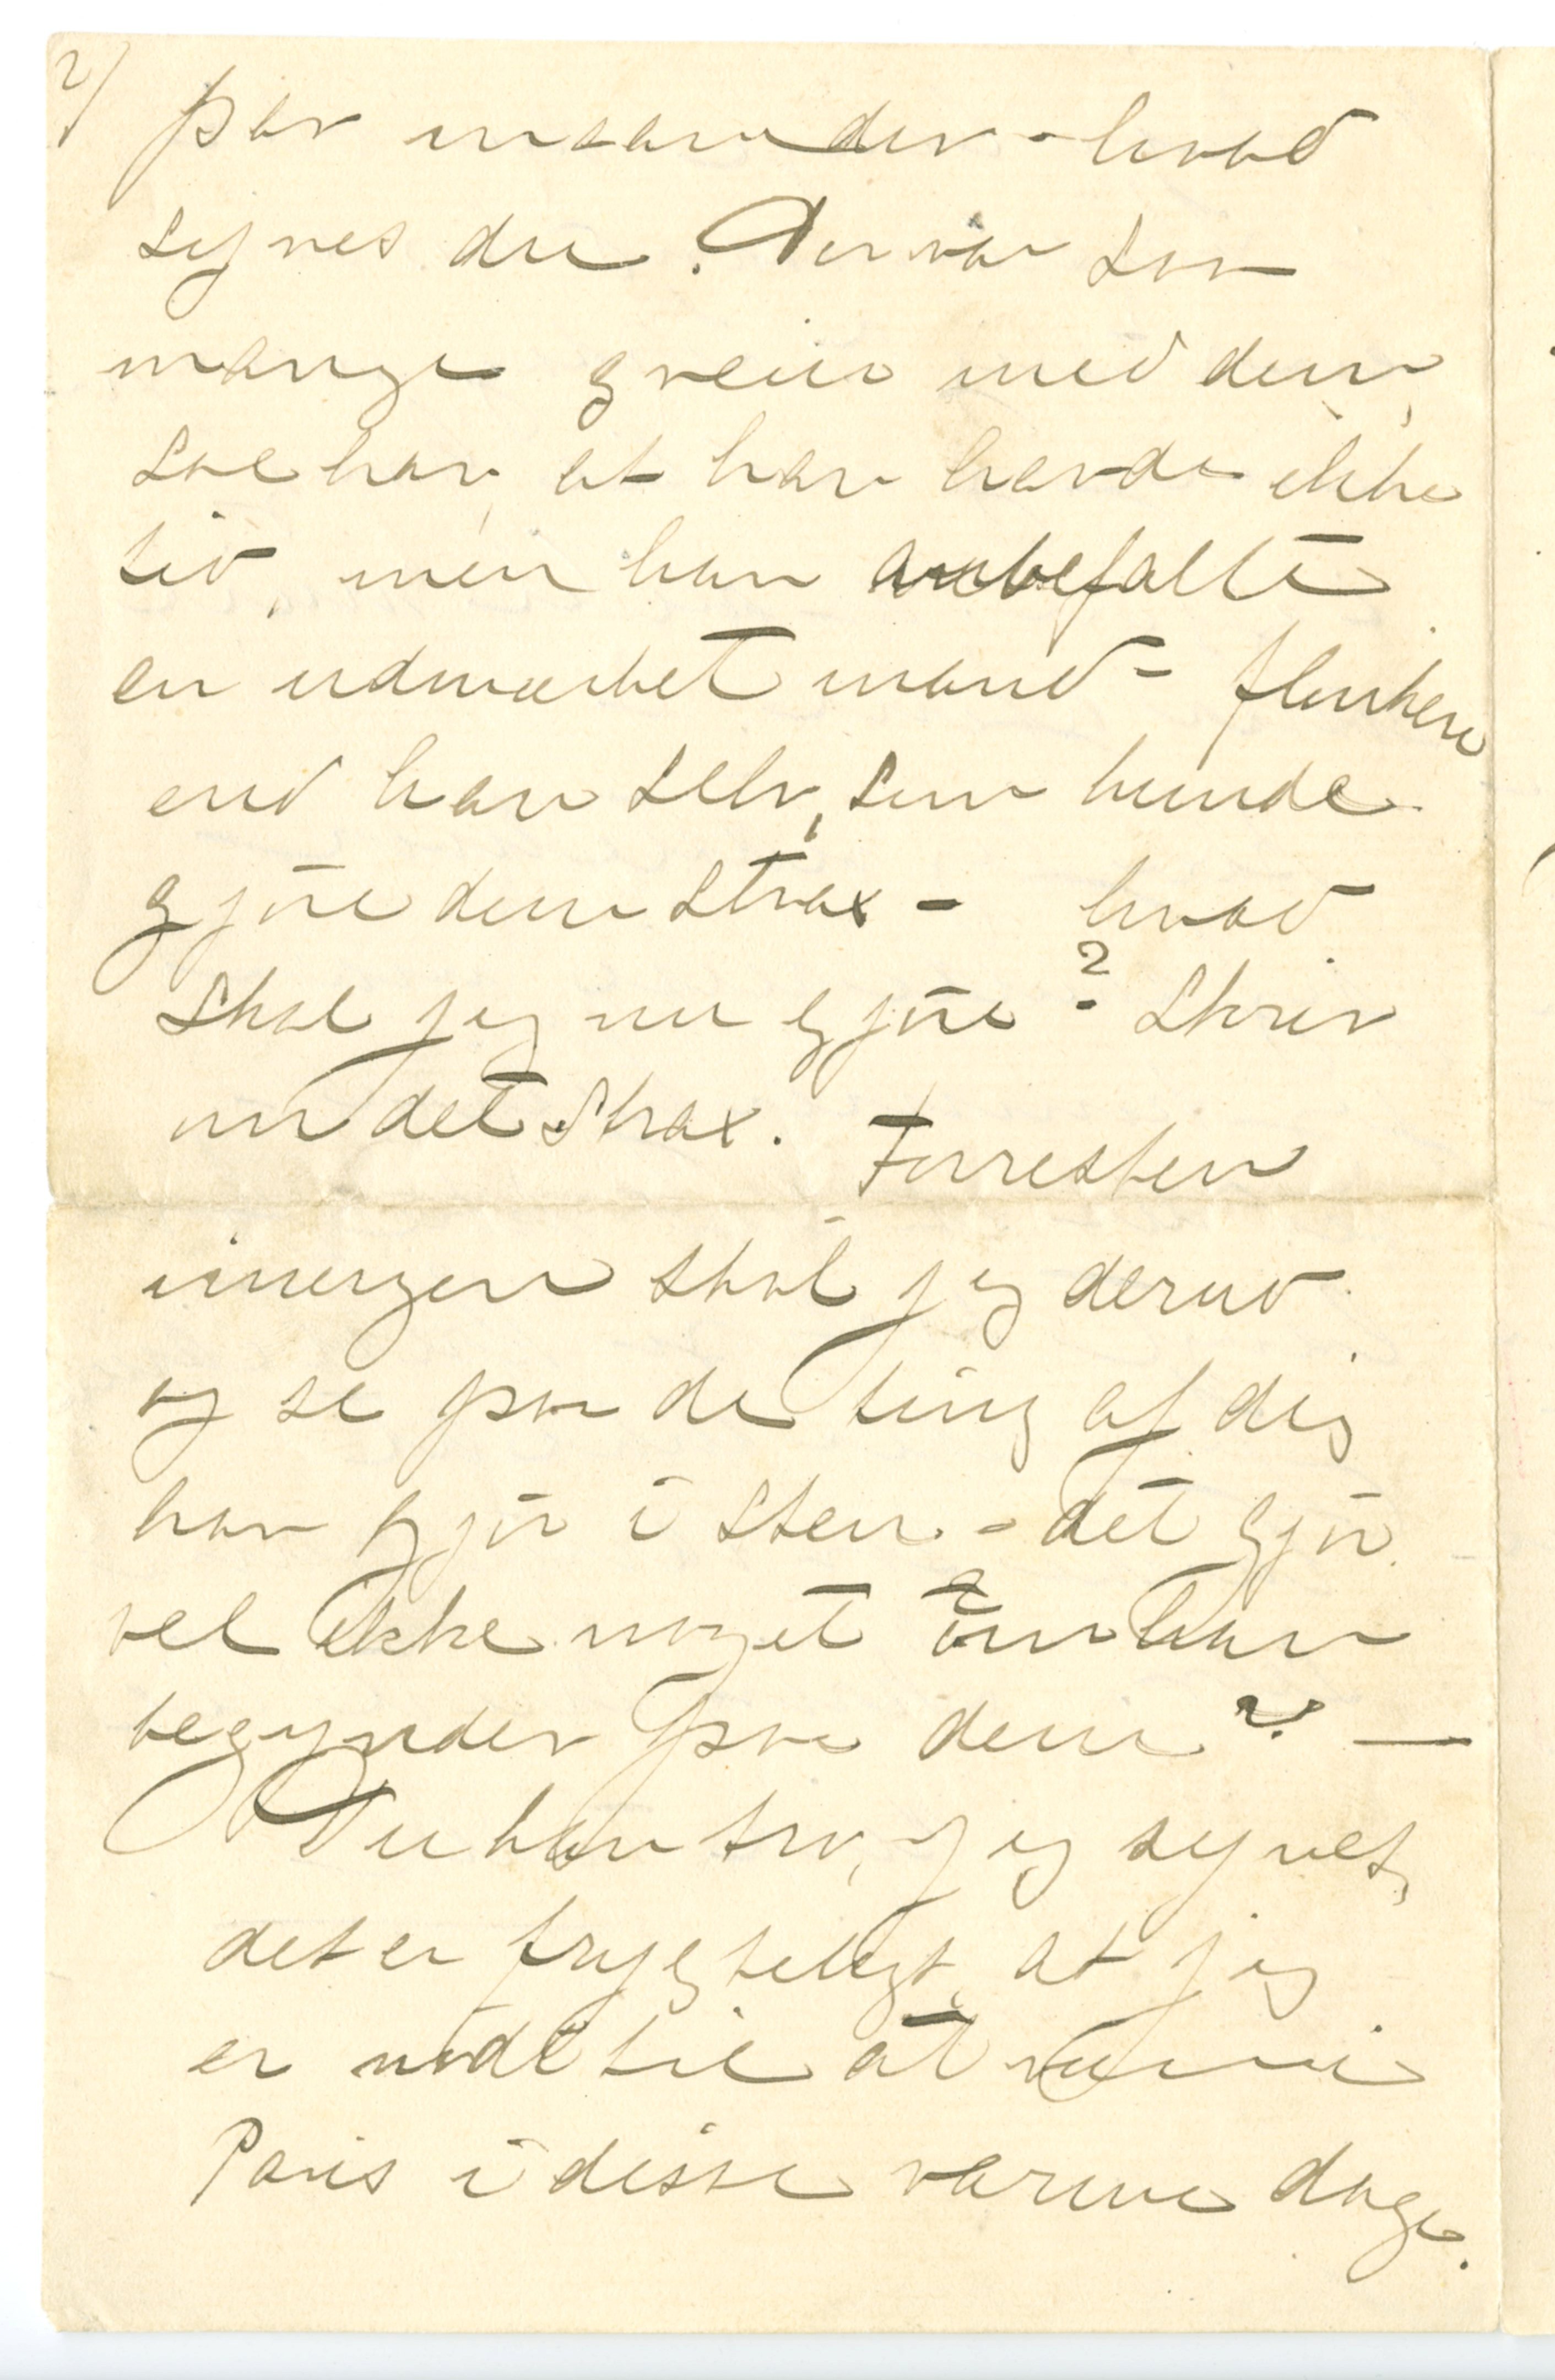 2/ par maaneder - hvad
synes du. Der var saa
mange greier med dem,
sae han, at han havde ikke
tid, men han anbefalte
en udmærket mand - flinkere
end han selv, som kunde
gjøre dem strax - hvad
skal jeg nu gjøre? Skriv
om det strax. Forresten
imorgen skal jeg derud
og se paa de ting af dig
han gjør i sten - det gjør
vel ikke noget om han
begynder paa dem? —
Du kan tro, jeg synes,
det er frygteligt, at jeg
er nødt til at være i
Paris i disse varme dage.